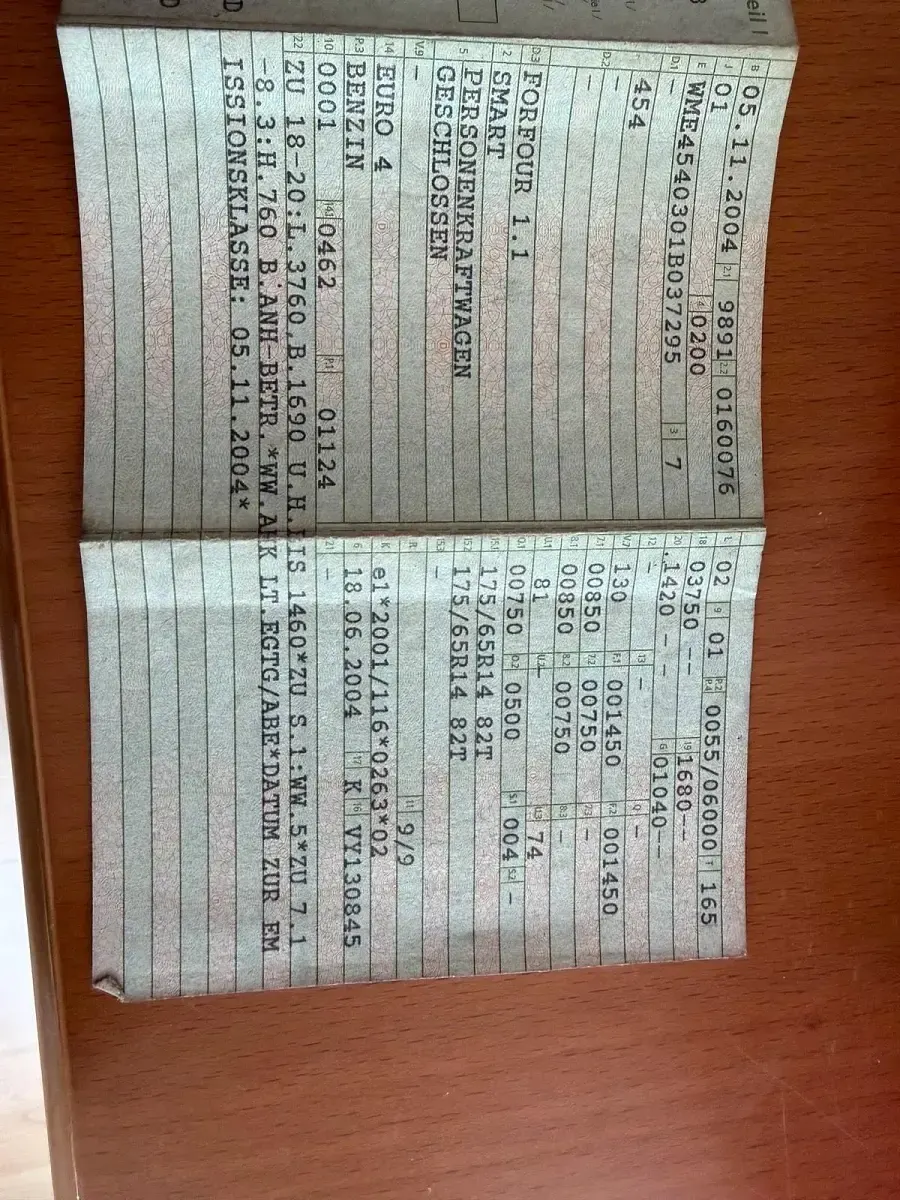 eil I
B 05.11.2004 2.1 9891 2.2 0160076
J 01 4 0200
E WME4540301B037295 3 7
D.1 –
454
D.2 –
–
D.3 FORFOUR 1.1
2 SMART
5 PERSONENKRAFTWAGEN
GESCHLOSSEN
V.9 –
14 EURO 4
P.3 BENZIN
10 0001 14.1 0462 P.1 01124
L 02 9 01 P.2 P.4 0055/06000 T 165
18 03750 -- 19 1680--
20 1420 - - G 01040--
12 – 13 – Q –
V.7 130 F.1 001450 F.2 001450
7.1 00850 7.2 00750 7.3 –
8.1 00850 8.2 00750 8.3 –
U.1 81 U.2 – U.3 74
O.1 00750 O.2 0500 S.1 004 S.2 –
15.1 175/65R14 82T
15.2 175/65R14 82T
15.3 –
R 11 9/9
K e1*2001/116*0263*02
6 18.06.2004 17 K 16 VY130845
21 –
22 ZU 18-20:L.3760,B.1690 U.H.BIS 1460*ZU S.1:WW.5*ZU 7.1
-8.3:H.760 B.ANH-BETR.*WW.AHK LT.EGTG/ABE*DATUM ZUR EM
ISSIONSKLASSE: 05.11.2004*